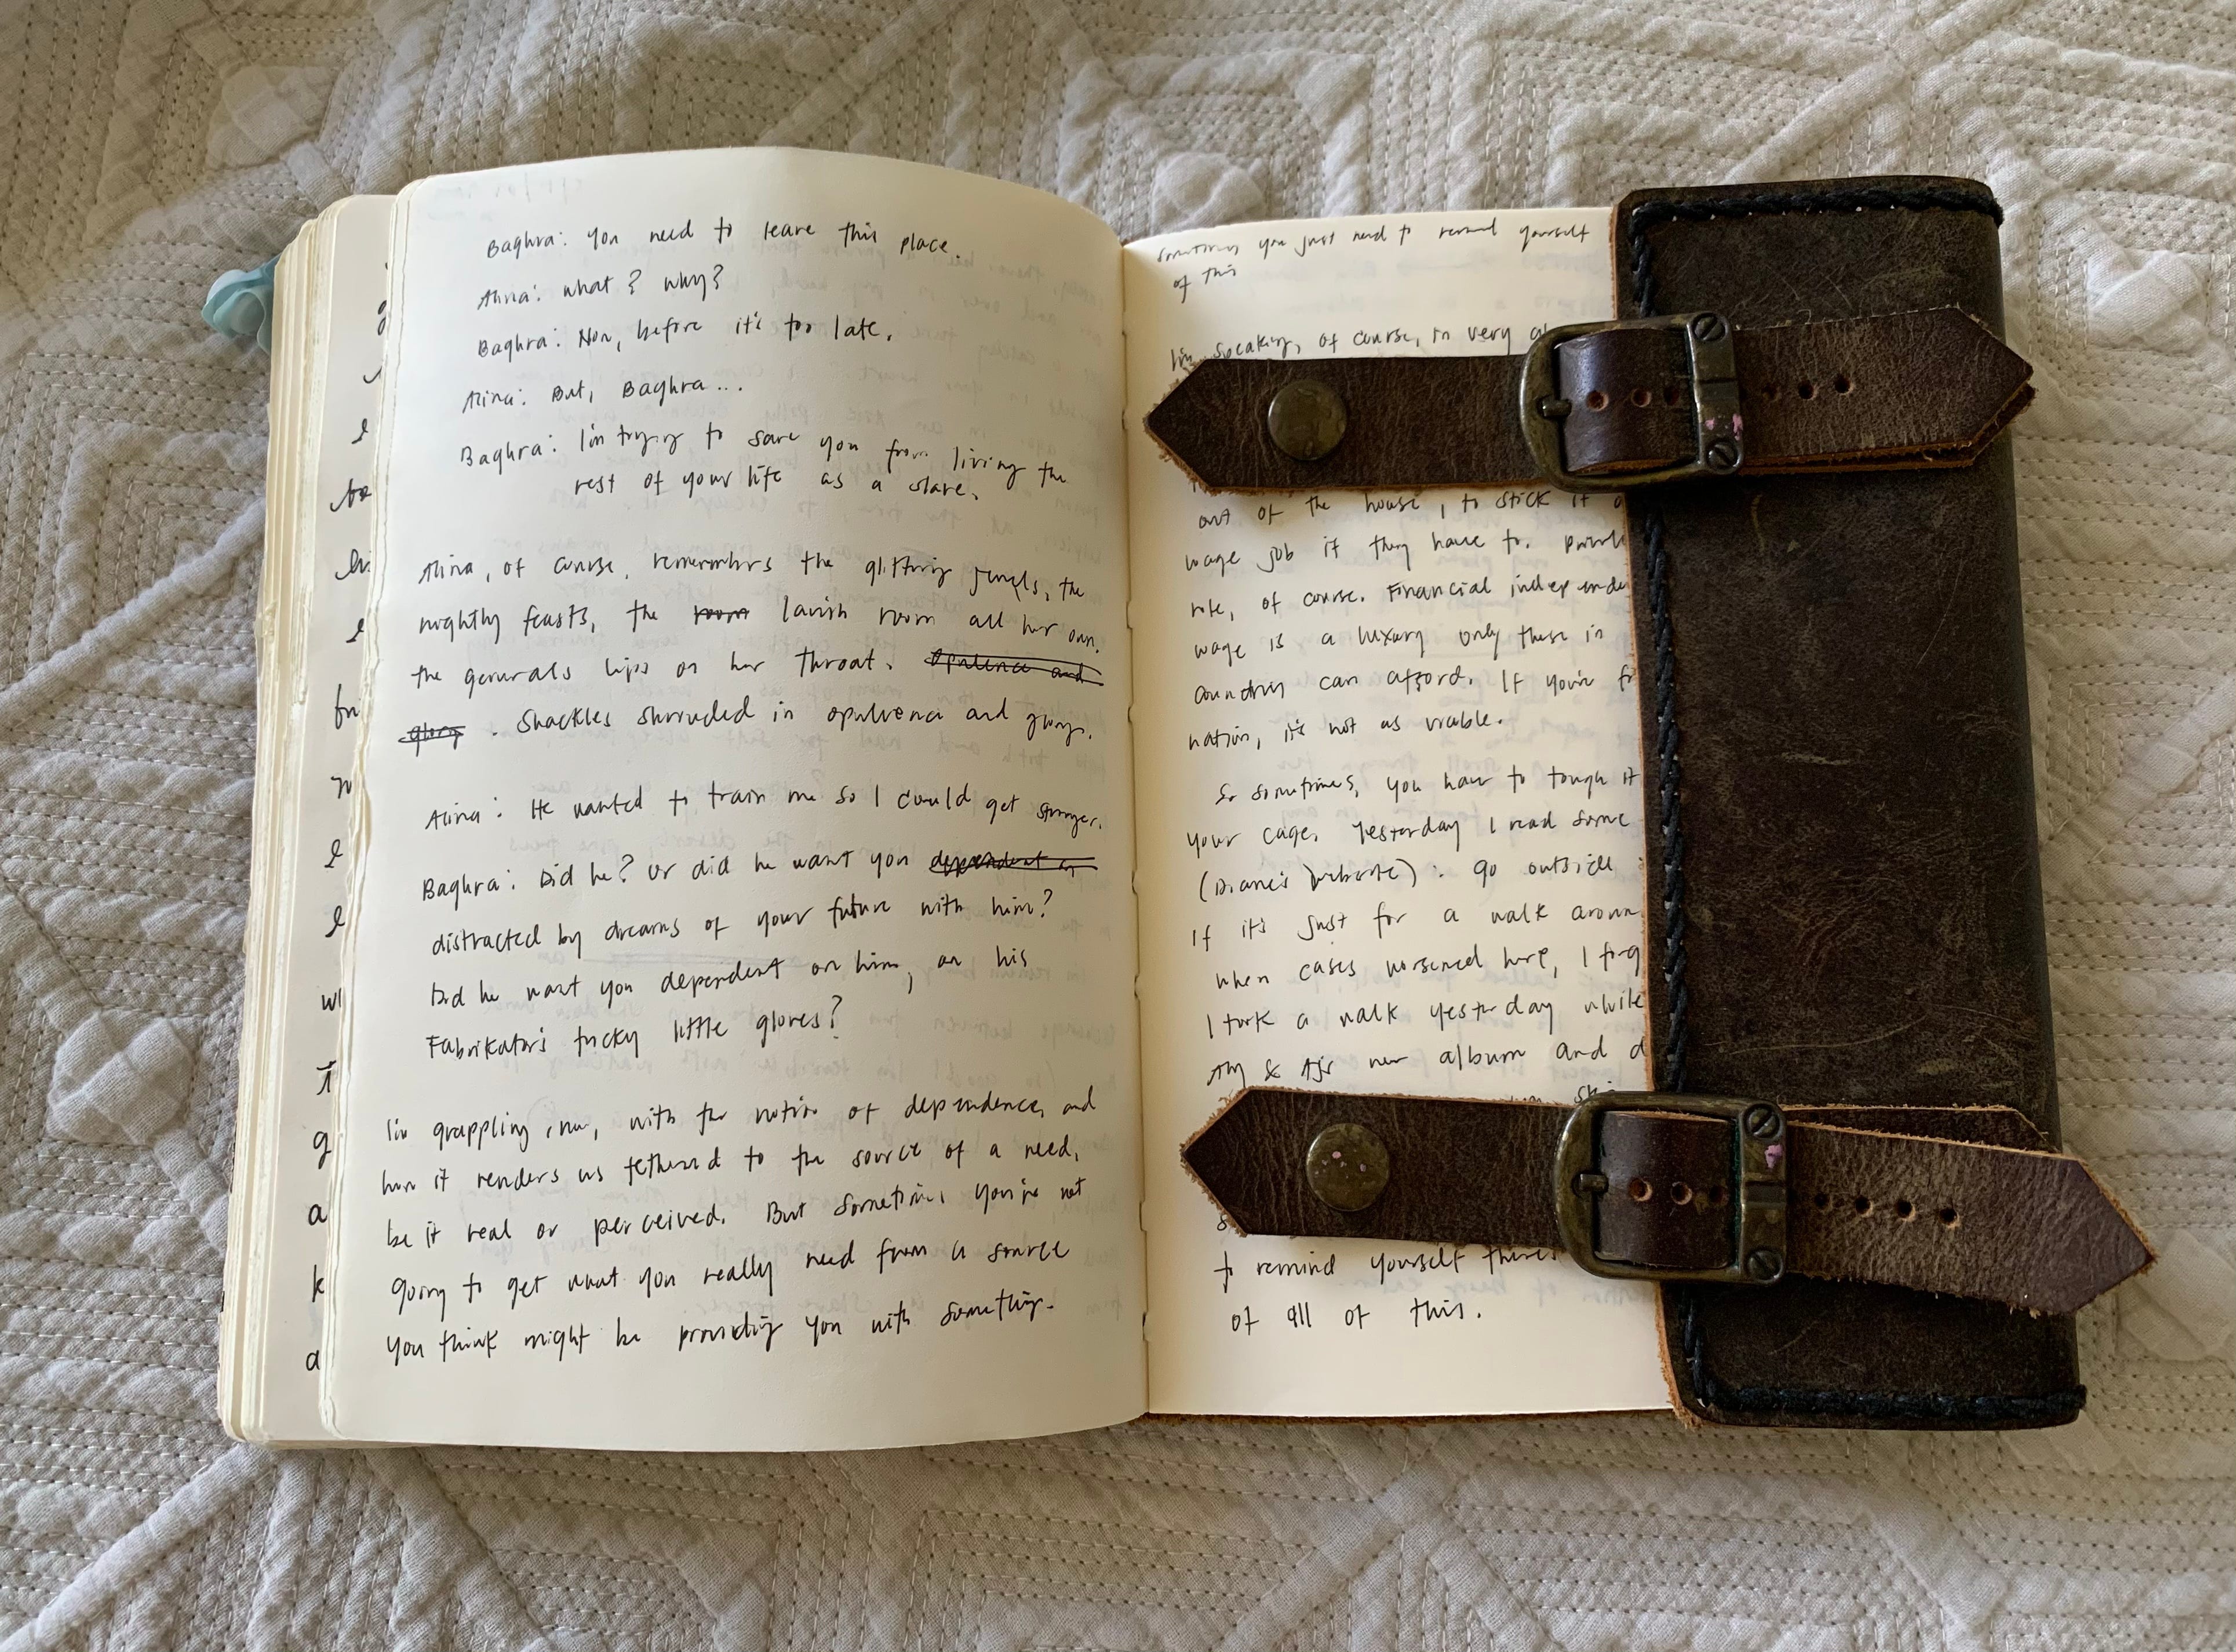 Baghra: You need to leave this place.
Alina: What? Why?
Baghra: Now, before it's too late.
Alina: But, Baghra...
Baghra: I'm trying to save you from living the
rest of your life as a slave.
Alina, of course, remembers the glittering jewels, the
nightly feasts, the room lavish room all her own.
the generals lips on her throat. Opulence and
glory. Shackles shrouded in opulence and glory.
Alina: He wanted to train me so I could get stronger.
Baghra: Did he? Or did he want you dependent on
distracted by dreams of your future with him?
Did he want you dependent on him, on his
Fabrikator's tricky little gloves?
I'm grappling, now, with the notion of dependence, and
how it renders us tethered to the source of a need,
be it real or perceived. But sometimes you're not
going to get what you really need from a source
you think might be providing you with something.
sometimes you just need to remind yourself
of this
I'm speaking, of course, in very
out of the house, to stick it
wage job if they have to.
role, of course. Financial
wage is a luxury only those in
countries can afford. If you're
nation, it's not as viable.
So sometimes, you have to tough it
your cage. Yesterday I read some
(Diane's website): go outside
If it's just for a walk
when cases worsened here, I
I took a walk yesterday while
Aly & AJ's new album and
to remind yourself there's
of all of this.